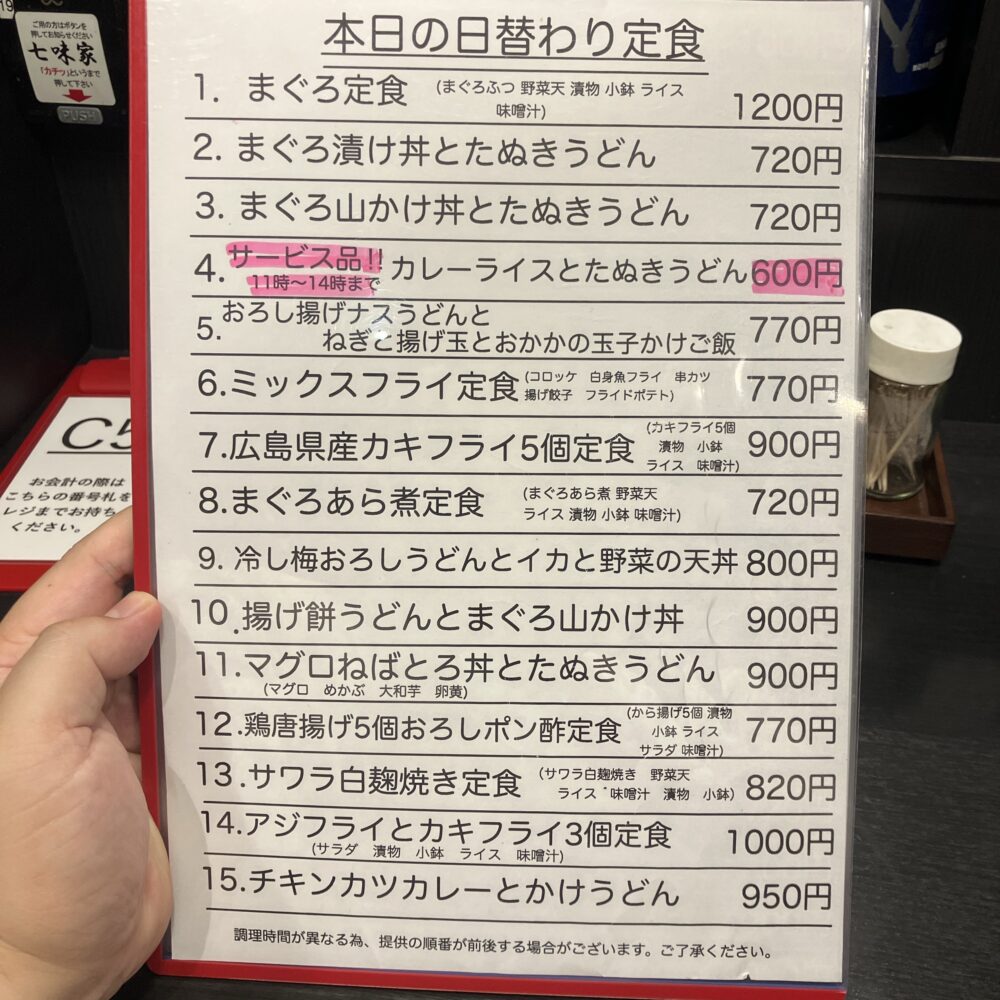 19
ご用の方はボタンを
押してお知らせください
七味家
「カチッ」というまで
押して下さい
PUSH
本日の日替わり定食
1. まぐろ定食 (まぐろぶつ 野菜天 漬物 小鉢 ライス
味噌汁) 1200円
2. まぐろ漬け丼とたぬきうどん 720円
3. まぐろ山かけ丼とたぬきうどん 720円
4. サービス品!! カレーライスとたぬきうどん 600円
11時〜14時まで
5. おろし揚げナスうどんと
ねぎと揚げ玉とおかかの玉子かけご飯 770円
6.ミックスフライ定食 (コロッケ 白身魚フライ 串カツ
揚げ餃子 フライドポテト) 770円
7.広島県産カキフライ5個定食 (カキフライ5個
漬物 小鉢
ライス 味噌汁) 900円
8.まぐろあら煮定食 (まぐろあら煮 野菜天
ライス 漬物 小鉢 味噌汁) 720円
9. 冷し梅おろしうどんとイカと野菜の天丼 800円
10.揚げ餅うどんとまぐろ山かけ丼 900円
11.マグロねばとろ丼とたぬきうどん 900円
(マグロ めかぶ 大和芋 卵黄)
12.鶏唐揚げ5個おろしポン酢定食 (から揚げ5個 漬物
小鉢 ライス
サラダ 味噌汁) 770円
13.サワラ白麹焼き定食 (サワラ白麹焼き 野菜天
ライス 味噌汁 漬物 小鉢) 820円
14.アジフライとカキフライ3個定食 1000円
(サラダ 漬物 小鉢 ライス 味噌汁)
15.チキンカツカレーとかけうどん 950円
調理時間が異なる為、提供の順番が前後する場合がございます。ご了承ください。
C5
お会計の際は
こちらの番号札を
レジまでお持ち
ください。